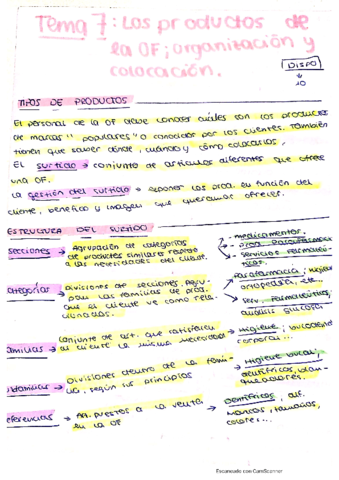 Tema 7: Los productos de
la OF; organización y
colocación.
DISPO
10
TIPOS DE PRODUCTOS
El personal de la OF debe conocer cuáles son los productos
de marcas "populares" o conocidos por los clientes. También
tienen que saber dónde, cuándo y cómo colocarlos.
EL surtido → conjunto de artículos diferentes que ofrece
una OF.
La gestión del surtido → exponer los prod. en función del
cliente, beneficio e imagen que queramos ofrecer.
ESTRUCTURA DEL SURTIDO
secciones → Agrupación de categorías
de productos similares respecto
a las necesidades del cliente.
- medicamentos.
- prod. Parafarmacia
- servicios Farmacéu-
ticos.
categorías → Divisiones de secciones. Agru-
pan las familias de prod.
que el cliente ve como rela-
cionados.
Parafarmacia; higiene
ortopedia, etc...
Serv. Farmacéuticos;
análisis glucosa
amilias → Conjunto de art. que satisfacen
al cliente la misma necesidad
Higiene; bucodental
corporal...
→ Divisiones dentro de la fami-
lia, según sus principios
Higiene bucal;
dentífricos, blan-
queadores.
eferencias → Art. puestos a la venta
en la OF
Dentífricos, dif.
marcas, tamaños,
colores...
Escaneado con CamScanner